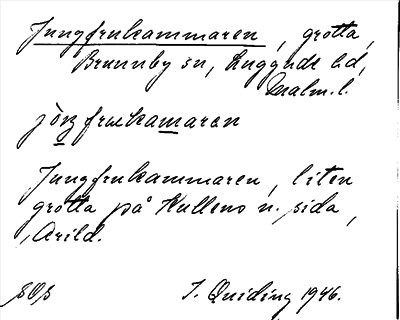 Jungfrukammaren, grotta,
Brunnby sn, Luggude hd,
Malm. l.
jòṉg frukamaren
Jungfrukammaren, liten
grotta på Kullens n. sida,
Arild.
I. Quiding 1946.